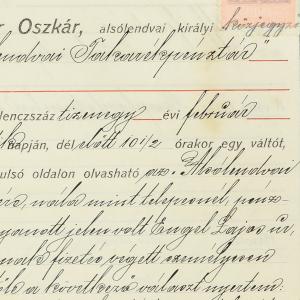 r Oszkár, alsólendvai királyi közjegyző
lendvai Takarékpénztár"
lenczszáz tizenegy évi február
napján, dél előtt 10 1/2 órakor egy váltót,
ulsó oldalon olvasható az Alsólendvai
nála mint telepesnél, pénz-
yanott jelen volt Engel Lajos úr,
nak fizetés végett személyesen
a következő választ nyertem: